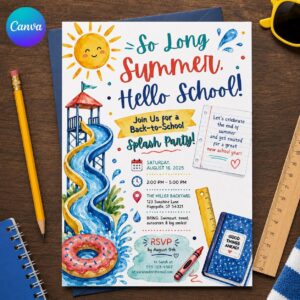 Canva
So Long
Summer,
Hello School!
Join Us for a
Back-to-School
Splash Party!
Let's celebrate
the end of
summer
and get excited
for a great
new school year!
SATURDAY,
AUGUST 16, 2025
2:00 PM - 5:00 PM
THE MILLER BACKYARD
123 Sunshine Lane
BRING: Swimsuit, towel,
sunscreen & big smiles!
RSVP
by August 9th
GOOD
THINGS
AHEAD